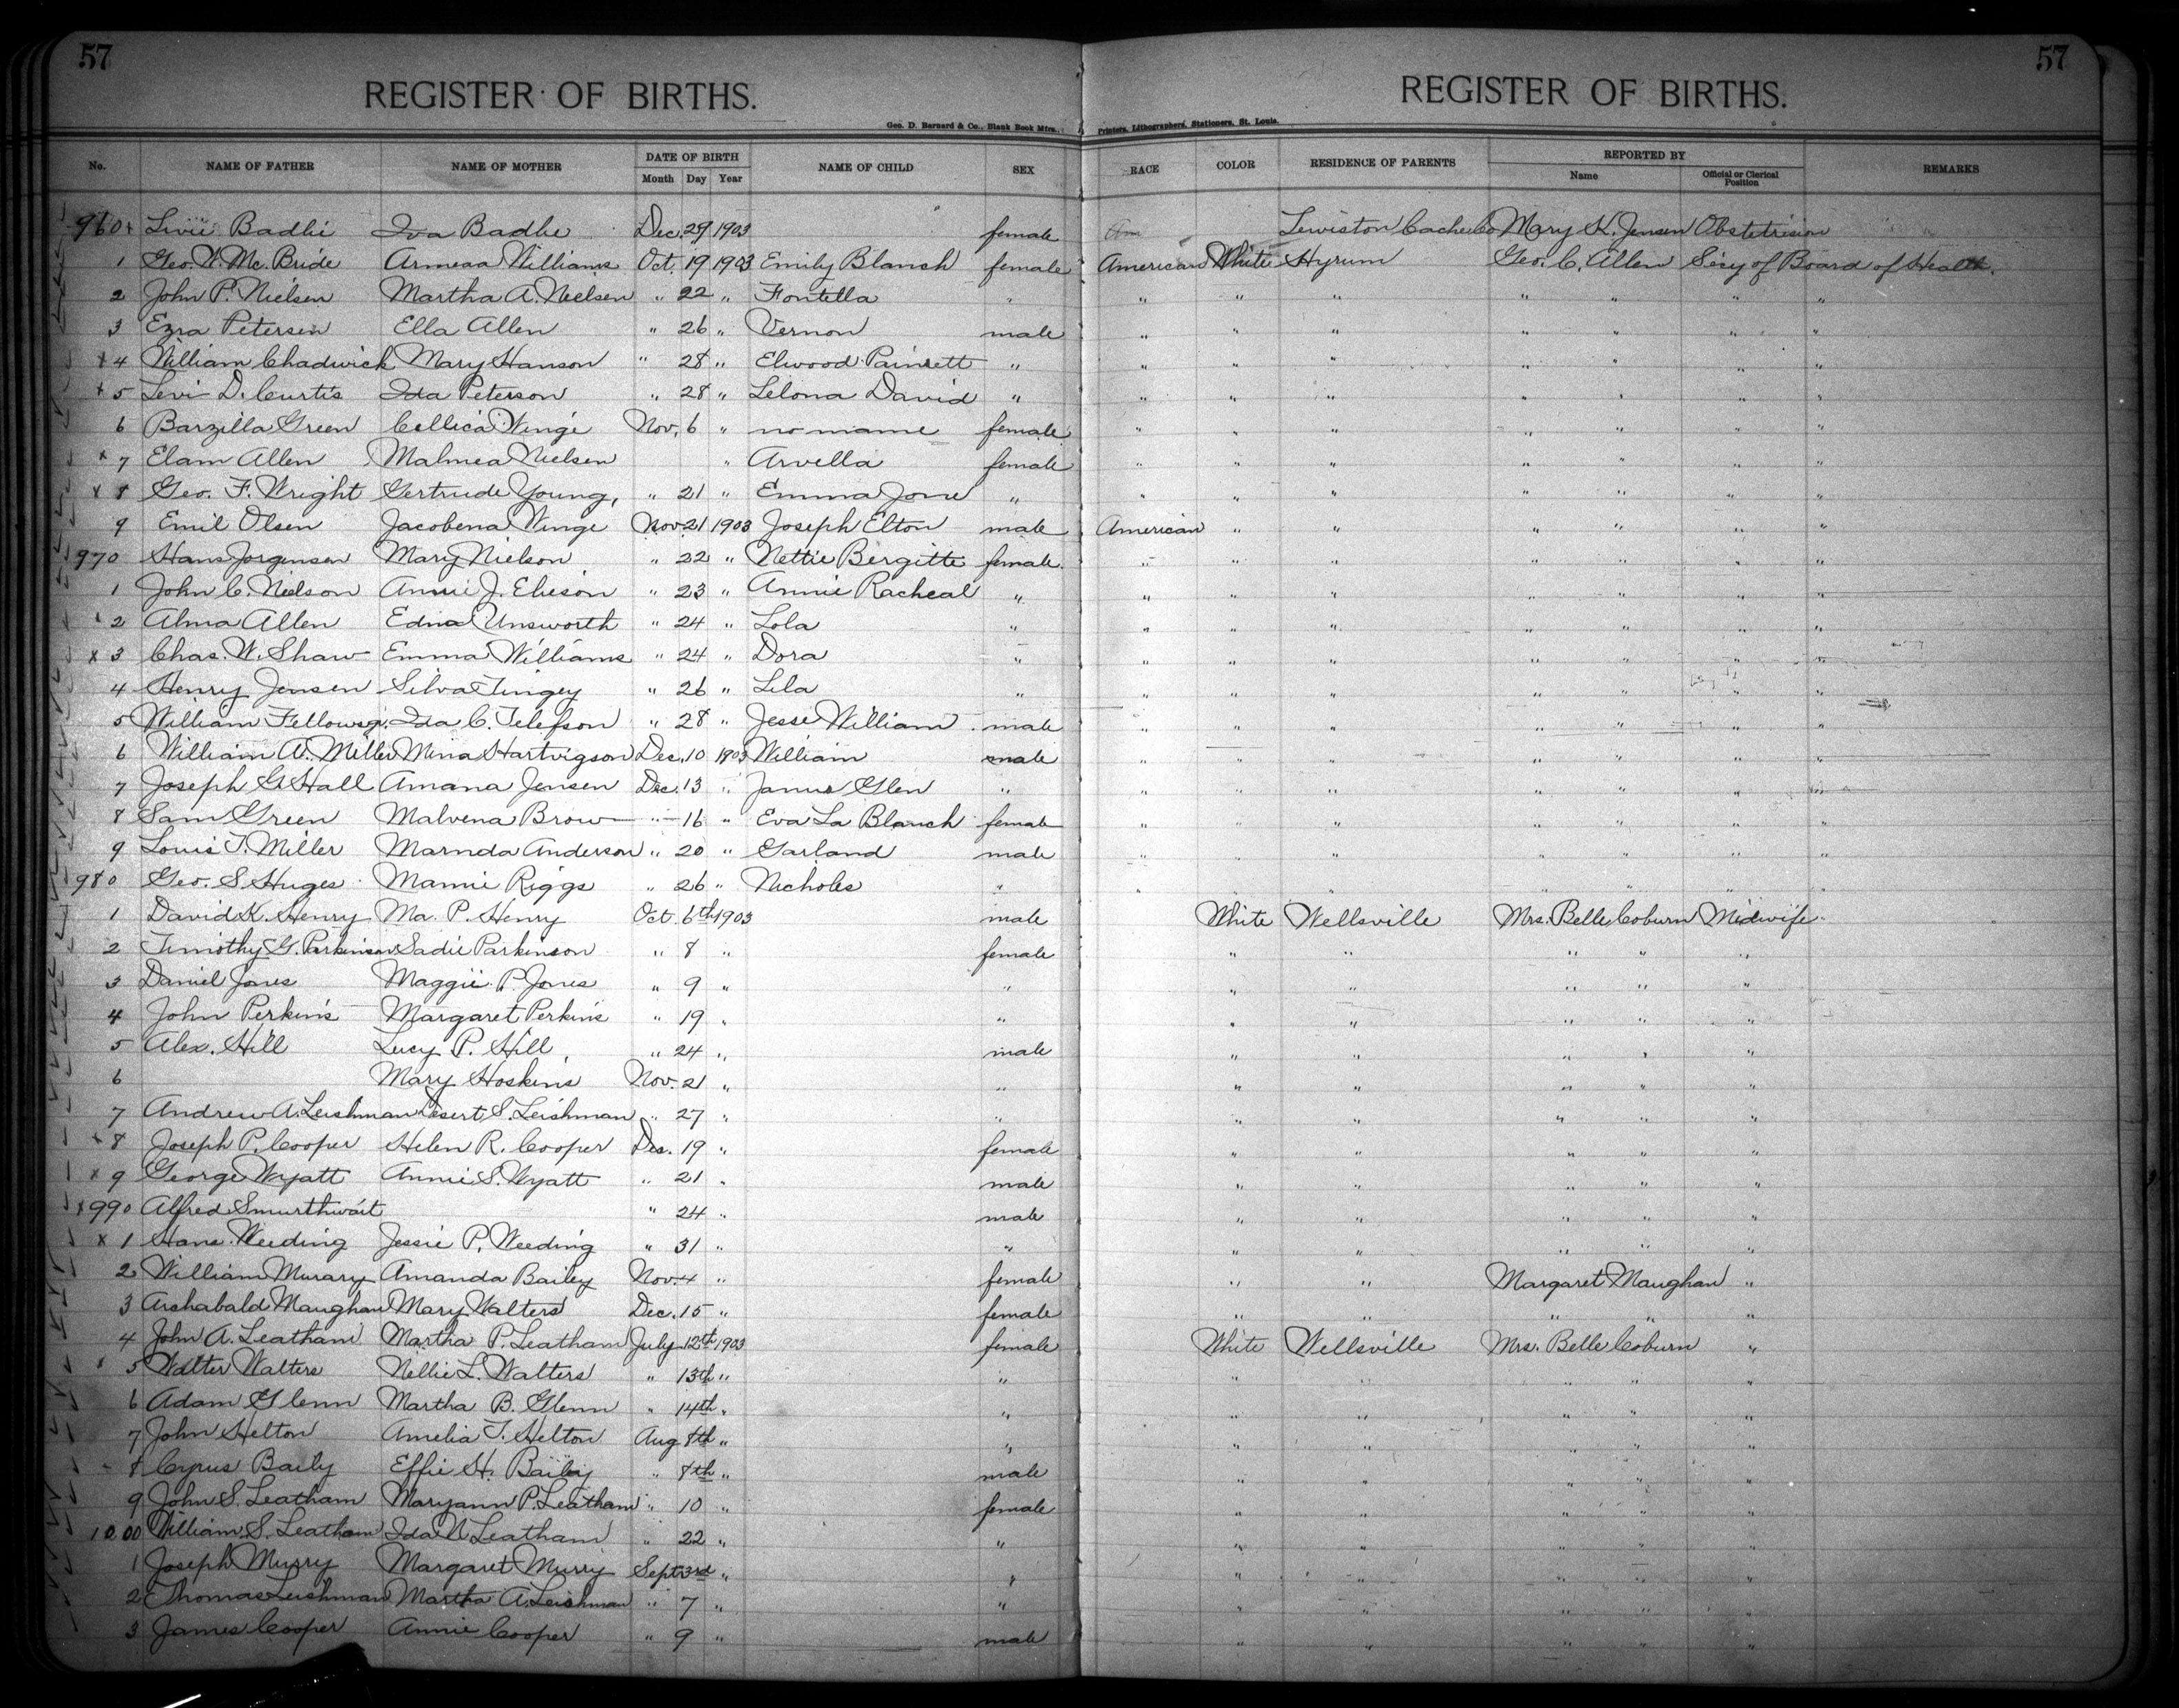 57
57
REGISTER OF BIRTHS.
REGISTER OF BIRTHS.
Geo. D. Barnard & Co., Blank Book Mfrs.,
Printers, Lithographers, Stationers, St. Louis.
No. NAME OF FATHER NAME OF MOTHER DATE OF BIRTH NAME OF CHILD SEX RACE COLOR RESIDENCE OF PARENTS REPORTED BY REMARKS
Month Day Year Name Official or Clerical Position
960 Livii Badhi Iva Badhe Dec. 29 1903 female Am Lewiston Cache Co Mary K. Jensen Obstetrision
1 Geo. W. Mc. Bride Williams Oct. 19 1903 Emily Blanch female American White Hyrum Geo. C. Allen Secy of Board of Health.
2 John P. Nielsen Martha A. Neelsen " 22 " Fontella " " " " " " " "
3 Ezra Petersen Ella Allen " 26 " Vernon male " " " " " " "
x 4 William Chadwick Mary Hanson " 28 " Elwood " " " " " " " "
x 5 Levi D. Curtis Ida Peterson " 28 " Lelona David " " " " " " " "
6 Barzilla Green Winge Nov. 6 " no name female " " " " " " "
x 7 Elam Allen Malmea Nielsen " Arvella female " " " " " " "
x 8 Geo. F. Wright Gertrude Young, " 21 " Emma " " " " " " " "
9 Emil Olsen Jacobena Winge Nov. 21 1903 Joseph Elton male American " " " " " "
970 Hans Jorgensen Mary Nielson " 22 " Nettie Bergitte female " " " " " "
1 John C. Nielson Annie J. Elieson " 23 " Annie Racheal " " " " " " " "
x 2 Alma Allen Edna Unsworth " 24 " Lola " " " " " " " "
x 3 Chas. W. Shaw Emma Williams " 24 " Dora " " " " " " " "
4 Henry Jensen Silva Tingey " 26 " Lila " " " " " " " "
5 William Fellows Ida C. Telefson " 28 " Jesse William male " " " " " " "
6 William A. Miller Mina Hartvigson Dec. 10 1903 William male " " " " " " "
7 Joseph G. Hall Amana Jensen Dec. 13 " Glen " " " " " " "
8 Sam Green Malvena Brow " 16 " Eva La Blanch female " " " " " " "
9 Louis T. Miller Marnda Anderson " 20 " Garland male " " " " " " "
980 Geo. S. Huges Mamie Riggs " 26 " Nicholes " " " " " " " "
1 David K. Henry Ma. P. Henry Oct. 6th 1903 male White Wellsville Mrs. Belle Coburn Midwife
2 Timothy G. Parkinson Sadie Parkinson " 8 " female " " " " "
3 Daniel Jones Maggie P. Jones " 9 " " " " " " "
4 John Perkins Margaret Perkins " 19 " " " " " " "
5 Alex. Hill Lucy P. Hill " 24 " male " " " " "
6 Mary Hoskins Nov. 21 " " " " " " "
7 Andrew A. Leishman Desert S. Leishman " 27 " " " " " " "
x 8 Joseph P. Cooper Helen R. Cooper Dec. 19 " female " " " " "
x 9 George Wyatt Annie S. Wyatt " 21 " male " " " " "
x 990 Alfred Smurthwait " 24 " male " " " " "
x 1 Hans Weeding Jessie P. Weeding " 31 " " " " " " "
2 William Murary Amanda Bailey Nov. 4 " female " " Margaret Maughan "
3 Archabald Maughan Mary Walters Dec. 15 " female " " " " "
4 John A. Leatham Martha P. Leatham July 12th 1903 female White Wellsville Mrs. Belle Coburn "
5 Walter Walters Nellie L. Walters " 13th " " " " " " "
6 Adam Glenn Martha B. Glenn " 14th " " " " " " "
7 John Helton Amelia T. Helton Aug 8th " " " " " " "
8 Cyrus Baily Effie H. Baily " 8th " male " " " " "
9 John S. Leatham Maryann P. Leatham " 10 " female " " " " "
1000 William S. Leatham Ida N Leatham " 22 " " " " " " "
1 Joseph Murry Margaret Murry Sept 3rd " " " " " " "
2 Thomas Leishman Martha A. Leishman " 7 " " " " " " "
3 James Cooper Annie Cooper " 9 " male " " " " "